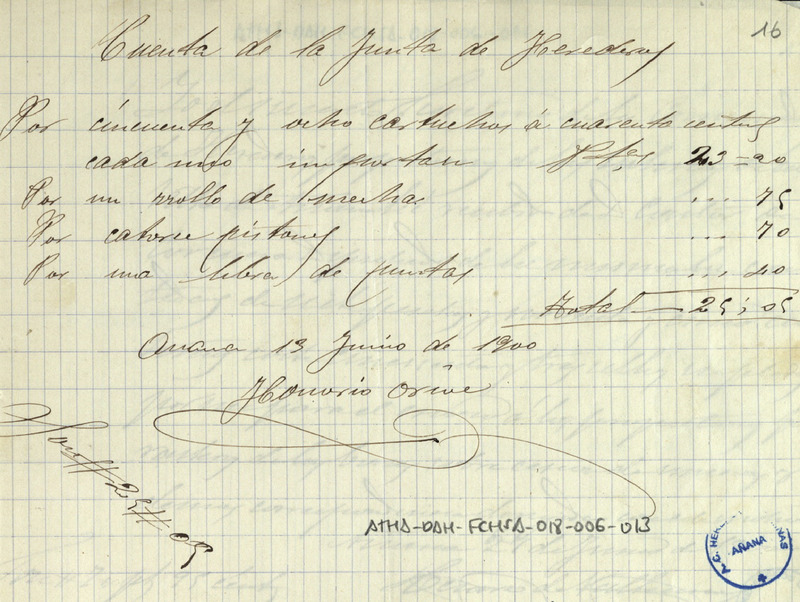 16
Cuenta de la Junta de Herederos
Por cincuenta y ocho cartuchos á cuarenta cents
cada uno importan Ptas 23=20
Por un rrollo de mecha ... 75
Por catorce pistones ... 70
Por una libra de puntas ... 40
Total — 25,05
Anana 13 Junio de 1900
Honorio Orive
Son # 25 # 05
ATHA-DAH-FCHSA-018-006-013
AÑANA